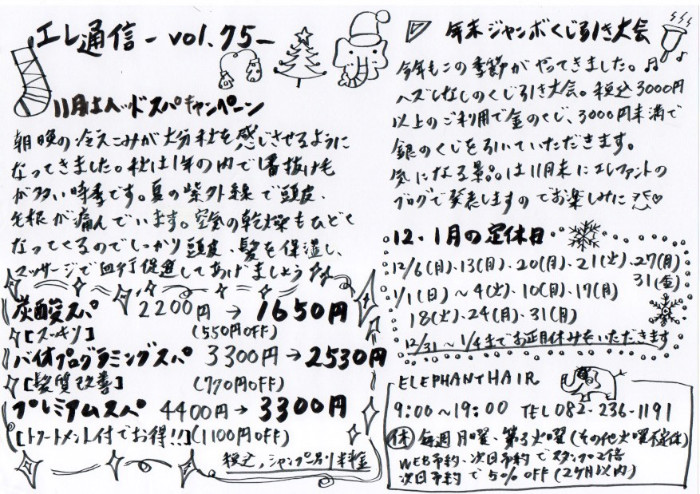 エレ通信 - vol.75 -
11月はヘッドスパキャンペーン
朝晩の冷えこみが大分秋を感じさせるように
なってきました。秋は1年の内で1番抜け毛
が多い時季です。夏の紫外線で頭皮、
毛根が痛んでいます。空気の乾燥もひどく
なってくるのでしっかり頭皮、髪を保湿し、
マッサージで血行促進してあげましょう
炭酸スパ 2200円→1650円
[スッキリ] (550円OFF)
バイオプログラミングスパ 3300円→2530円
[髪質改善] (770円OFF)
プレミアムスパ 4400円→3300円
[トリートメント付でお得!!] (1100円OFF)
税込、シャンプー別料金
年末ジャンボくじ引き大会
今年もこの季節がやってきました。♬♪
ハズレなしのくじ引き大会。税込3000円
以上のご利用で金のくじ、3000円未満で
銀のくじを引いていただきます。
気になる景品は11月末にエレファントの
ブログで発表しますのでお楽しみに
12、1月の定休日
12/6(月)、13(月)、20(月)、21(火)、27(月)
31(金)
1/1(日)〜4(火)、10(月)、17(月)
18(火)、24(月)、31(月)
12/31〜1/4までお正月休みをいただきます
ELEPHANT HAIR
9:00〜19:00 TEL 082-236-1191
休 毎週月曜、第3火曜(その他火曜不定休)
WEB予約、次回予約でスタンプ2倍
次回予約で5%OFF(2ヶ月以内)